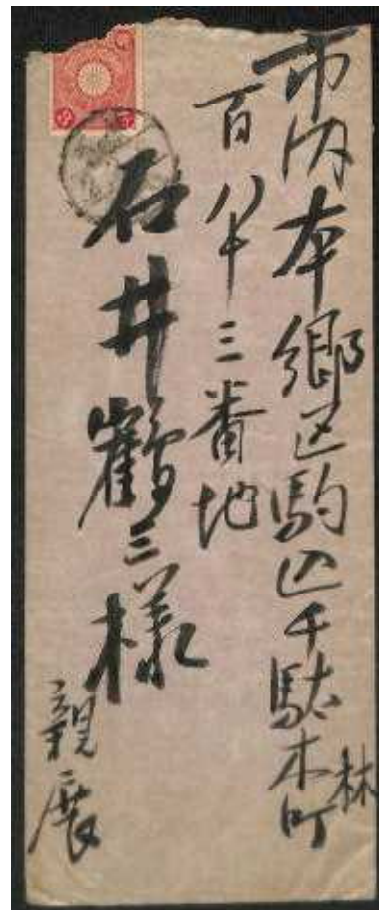 市内本郷区駒込千駄木町
林
百八十三番地
石井鶴三様
親展